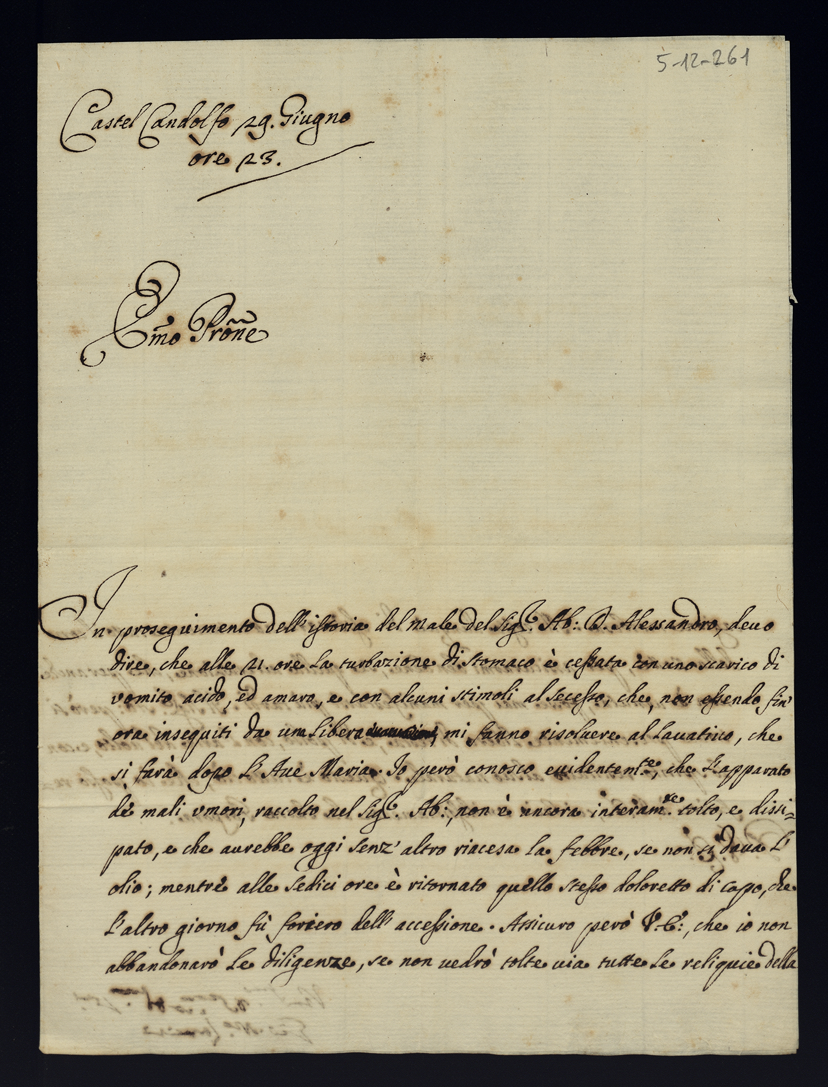 5-12-261
Castel Gandolfo 29. Giugno
ore 23.
Emo Prone
In proseguimento dell'istoria del male del Sigr. Ab: D. Alessandro, devo
dire, che alle 21. ore la turbazione di stomaco è cessata con uno scarico di
vomito acido, ed amaro, e con alcuni stimoli al secesso, che, non essendo fin'
ora inseguiti da una libera mi fanno risolvere al lavativo, che
si farà dopo l'Ave Maria. Io però conosco evidentemte, che l'apparato
de mali umori, raccolto nel Sigr. Ab:, non è ancora interamte tolto, e dissi-
pato, e che avrebbe oggi senz'altro riacesa la febbre, se non si dava l'
olio; mentre alle sedici ore è ritornato quello stesso doloretto di capo, che
l'altro giorno fù foriero dell'accessione. Assicuro però V. E:, che io non
abbandonarò le diligenze, se non vedrò tolte via tutte le reliquie della